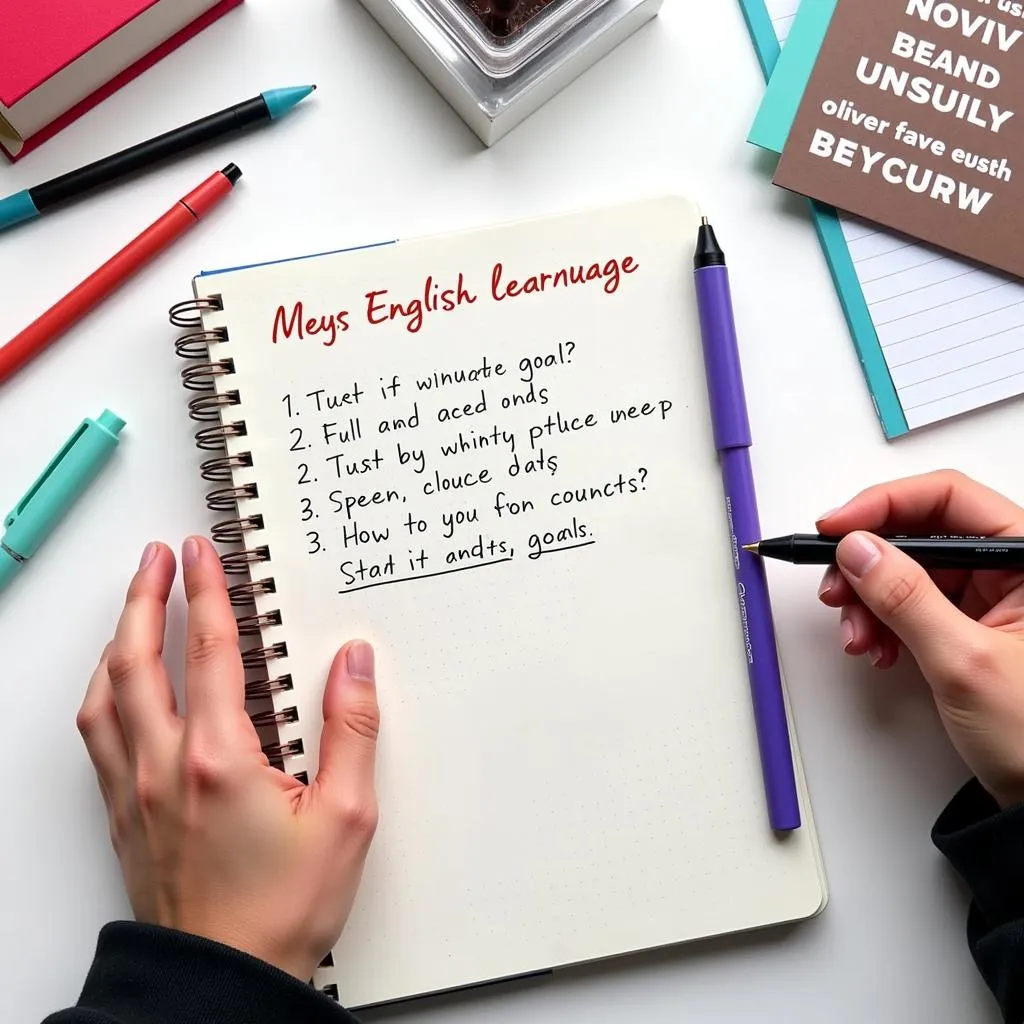 NOVIV
BEAND
UNSUILY
oliver fave eusth
BEYCURW
Meys English learnuage
1. Tuet if winuate goal?
2. Full and aced onds
2. Tust by whinty ptluce uneep
3. Speen, clouce dats
3. How to you fon councts?
Start it andts, goals.